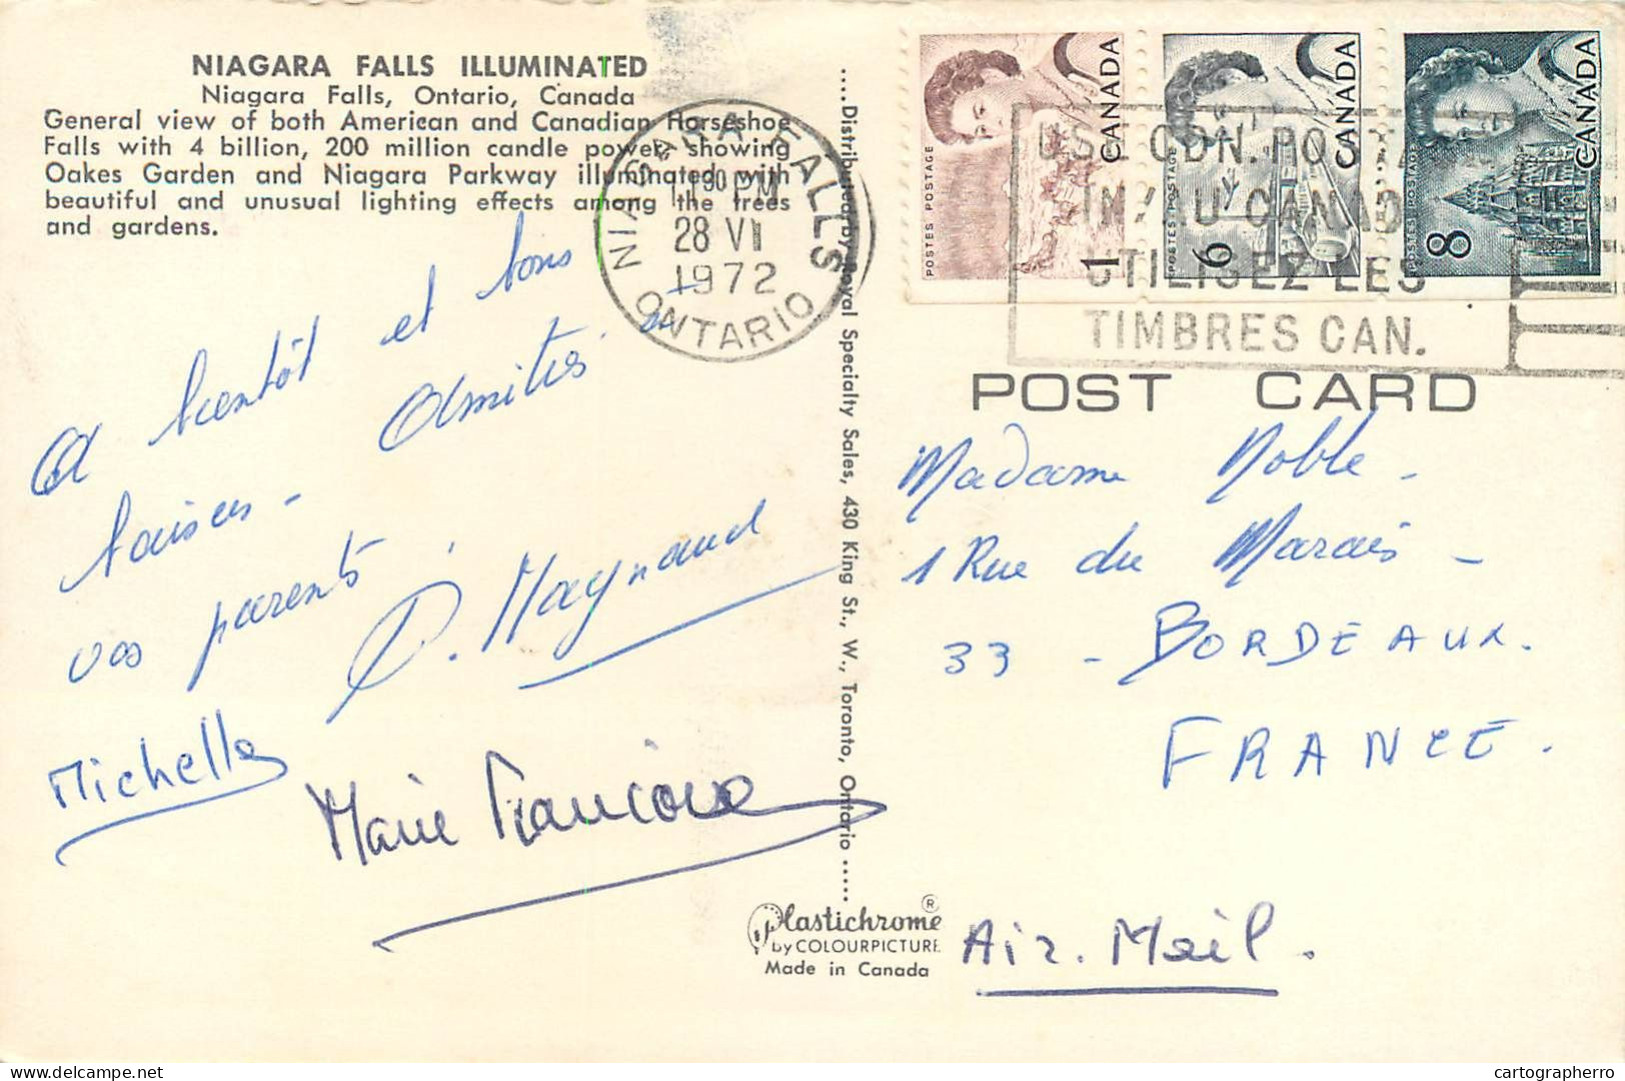 NIAGARA FALLS ILLUMINATED
Niagara Falls, Ontario, Canada
General view of both American and Canadian Horseshoe
Falls with 4 billion, 200 million candle power, showing
Oakes Garden and Niagara Parkway illuminated with
beautiful and unusual lighting effects among the trees
and gardens.
A bientôt et bons
baisers -
Amitiés à
vos parents.
D. Maynaud
Michelle
Marie Françoise
....Distributed by Royal Specialty Sales, 430 King St., W., Toronto, Ontario .....
Plastichrome ®
by COLOURPICTURE
Made in Canada
NIAGARA FALLS
PM
28 VI
1972
ONTARIO
CANADA
POSTES POSTAGE
1
CANADA
POSTES POSTAGE
6
CANADA
POSTES POSTAGE
8
USE CDN. POST
IN/AU CANAD
UTILISEZ LES
TIMBRES CAN.
POST CARD
Madame Noble -
1 Rue du Marais -
33 - BORDEAUX.
FRANCE.
Air. Mail.
delcampe.net
cartographerro